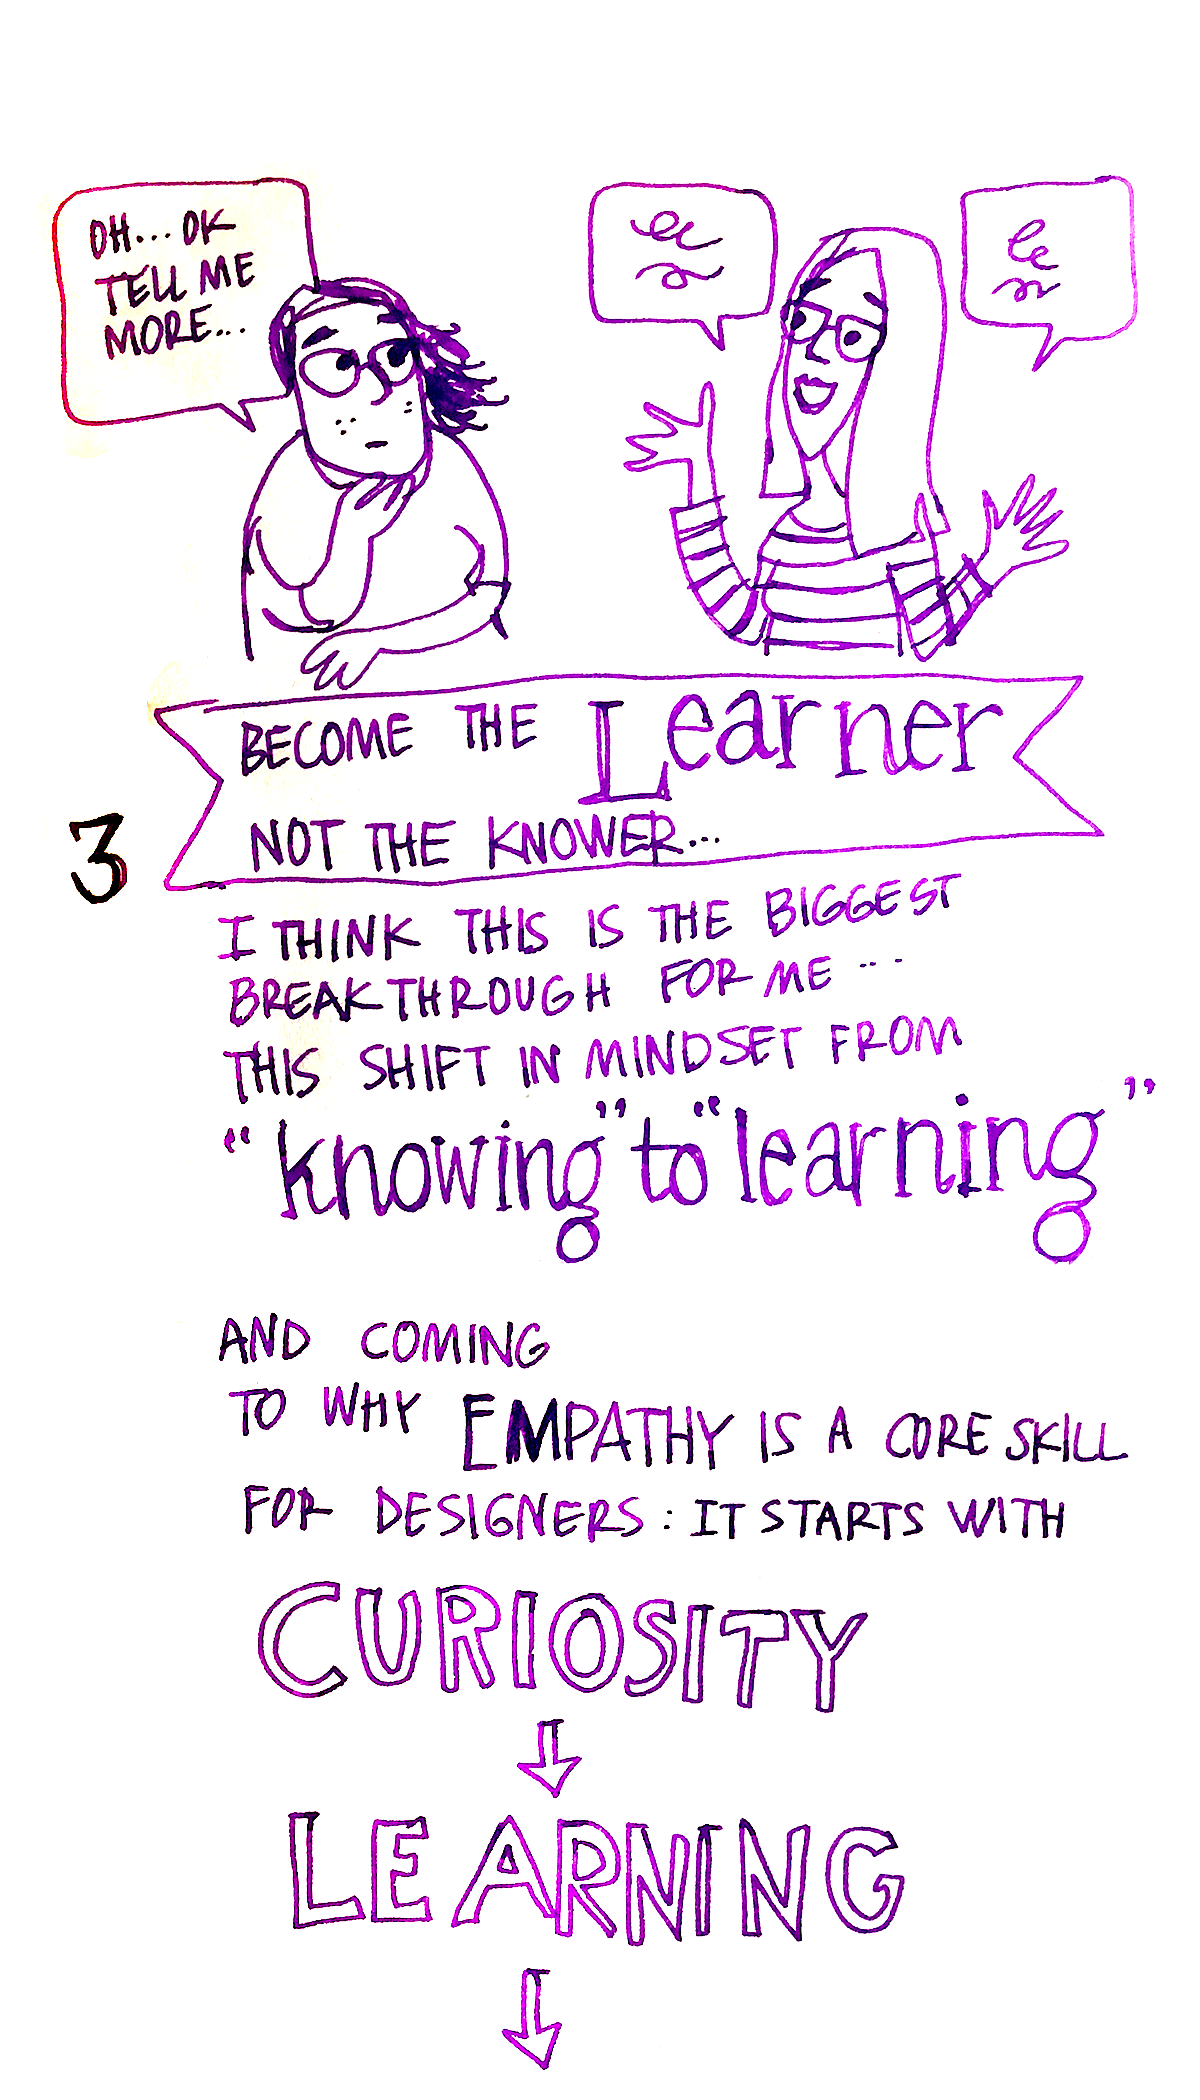 OH... OK
TELL ME
MORE...
BECOME THE Learner
NOT THE KNOWER...
3
I THINK THIS IS THE BIGGEST
BREAKTHROUGH FOR ME ...
THIS SHIFT IN MINDSET FROM
“knowing” to “learning”
AND COMING
TO WHY EMPATHY IS A CORE SKILL
FOR DESIGNERS: IT STARTS WITH
CURIOSITY
LEARNING